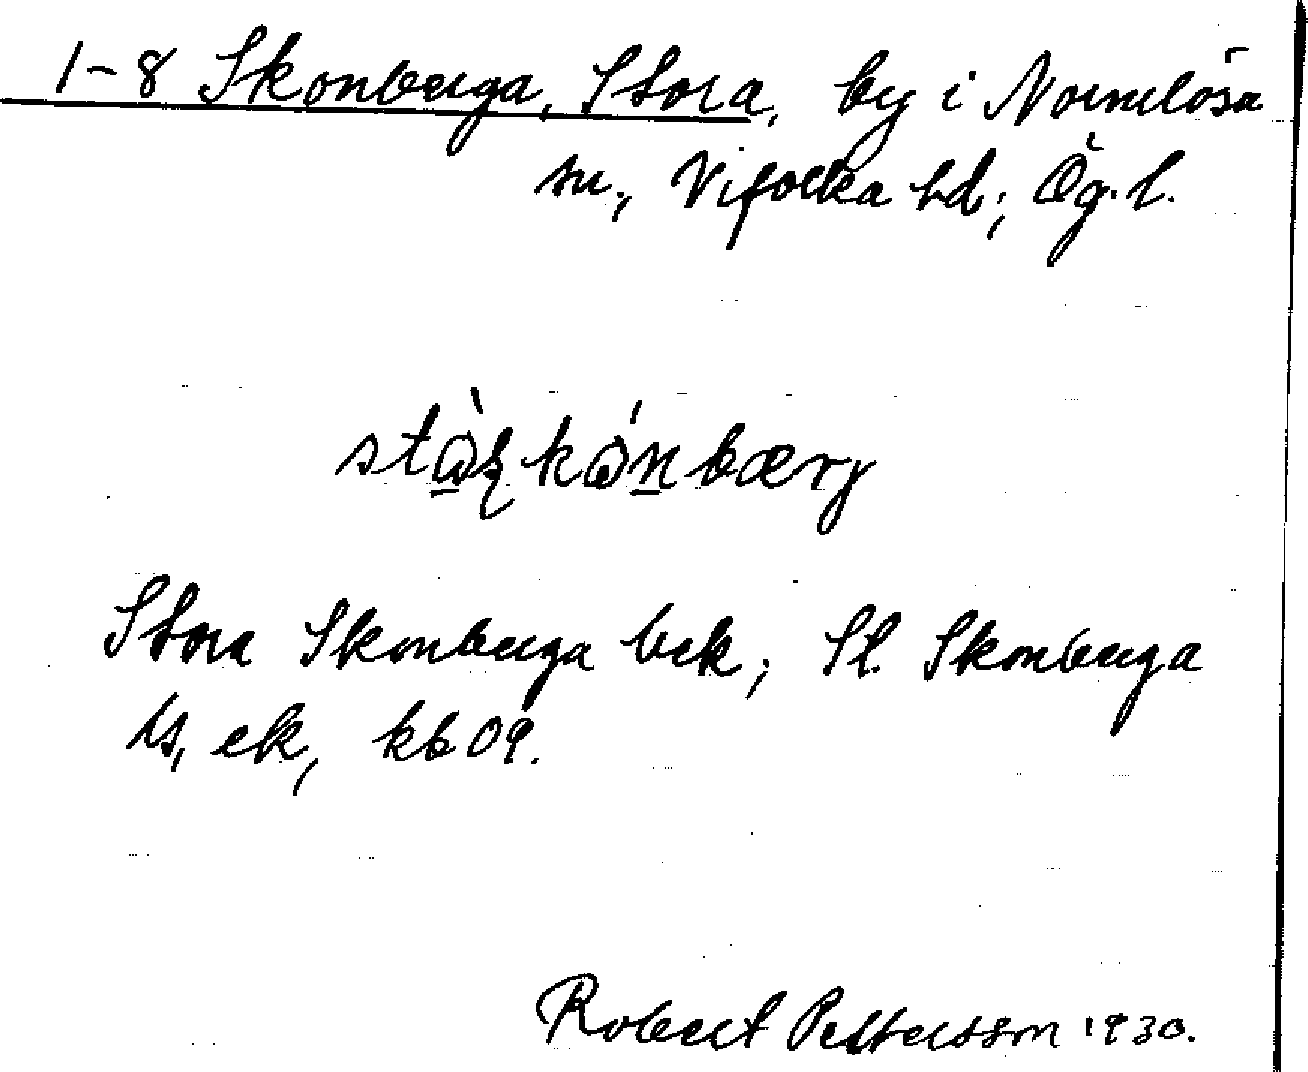 1-8 Skonberga, Stora, by i Normlösa
sn, Vifolka hd; Ög. l.
Stora Skonberga bek; St. Skonberga
ek, kb 09.
Robert Pettersson 1930.